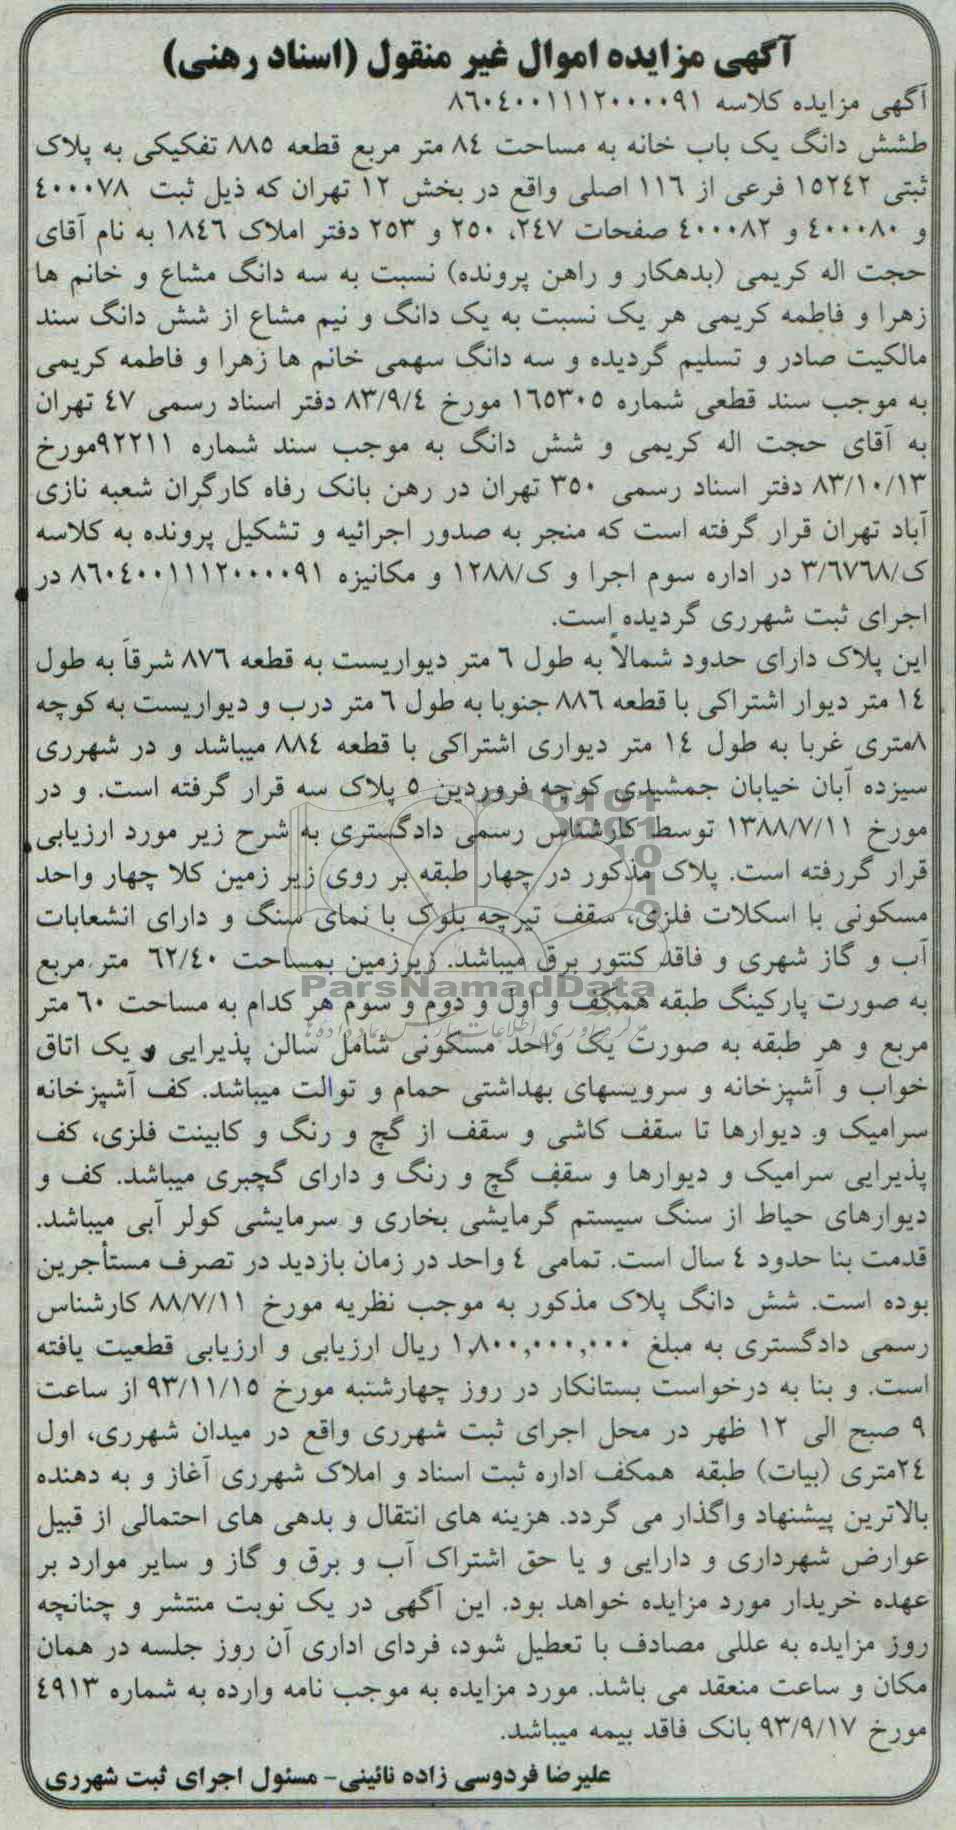 آگهی مزایده اموال غیر منقول (اسناد رهنی)
آگهی مزایده کلاسه ۸۶۰۴۰۰۱۱۱۲۰۰۰۰۹۱
طشش دانگ یک باب خانه به مساحت ۸۴ متر مربع قطعه ۸۸۵ تفکیکی به پلاک
ثبتی ۱۵۲۴۲ فرعی از ۱۱۶ اصلی واقع در بخش ۱۲ تهران که ذیل ثبت ۴۰۰۰۷۸
و ۴۰۰۰۸۰ و ۴۰۰۰۸۲ صفحات ۲۴۷، ۲۵۰ و ۲۵۳ دفتر املاک ۱۸۴۶ به نام آقای
حجت اله کریمی (بدهکار و راهن پرونده) نسبت به سه دانگ مشاع و خانم ها
زهرا و فاطمه کریمی هر یک نسبت به یک دانگ و نیم مشاع از شش دانگ سند
مالکیت صادر و تسلیم گردیده و سه دانگ سهمی خانم ها زهرا و فاطمه کریمی
به موجب سند قطعی شماره ۱۶۵۳۰۵ مورخ ۸۳/۹/۴ دفتر اسناد رسمی ۴۷ تهران
به آقای حجت اله کریمی و شش دانگ به موجب سند شماره ۹۲۲۱۱مورخ
۸۳/۱۰/۱۳ دفتر اسناد رسمی ۳۵۰ تهران در رهن بانک رفاه کارگران شعبه نازی
آباد تهران قرار گرفته است که منجر به صدور اجرائیه و تشکیل پرونده به کلاسه
ک/۳/۶۷۶۸ در اداره سوم اجرا و ک/۱۲۸۸ و مکانیزه ۸۶۰۴۰۰۱۱۱۲۰۰۰۰۹۱ در
اجرای ثبت شهرری گردیده است.
این پلاک دارای حدود شمالاً به طول ۶ متر دیواریست به قطعه ۸۷۶ شرقاً به طول
۱۴ متر دیوار اشتراکی با قطعه ۸۸۶ جنوبا به طول ۶ متر درب و دیواریست به کوچه
۸متری غربا به طول ۱۴ متر دیواری اشتراکی با قطعه ۸۸۴ میباشد و در شهرری
سیزده آبان خیابان جمشیدی کوچه فروردین ۵ پلاک سه قرار گرفته است. و در
مورخ ۱۳۸۸/۷/۱۱ توسط کارشناس رسمی دادگستری به شرح زیر مورد ارزیابی
قرار گررفته است. پلاک مذکور در چهار طبقه بر روی زیر زمین کلا چهار واحد
مسکونی با اسکلات فلزی، سقف تیرچه بلوک با نمای سنگ و دارای انشعابات
آب و گاز شهری و فاقد کنتور برق میباشد. زیرزمین بمساحت ۶۲/۴۰ متر مربع
ParsNamadData
به صورت پارکینگ طبقه همکف و اول و دوم و سوم هر کدام به مساحت ۶۰ متر
مربع و هر طبقه به صورت یک واحد مسکونی شامل سالن پذیرایی و یک اتاق
خواب و آشپزخانه و سرویسهای بهداشتی حمام و توالت میباشد. کف آشپزخانه
سرامیک و دیوارها تا سقف کاشی و سقف از گچ و رنگ و کابینت فلزی، کف
پذیرایی سرامیک و دیوارها و سقف گچ و رنگ و دارای گچبری میباشد. کف و
دیوارهای حیاط از سنگ سیستم گرمایشی بخاری و سرمایشی کولر آبی میباشد.
قدمت بنا حدود ۴ سال است. تمامی ۴ واحد در زمان بازدید در تصرف مستأجرین
بوده است. شش دانگ پلاک مذکور به موجب نظریه مورخ ۸۸/۷/۱۱ کارشناس
رسمی دادگستری به مبلغ ۱,۸۰۰,۰۰۰,۰۰۰ ریال ارزیابی و ارزیابی قطعیت یافته
است. و بنا به درخواست بستانکار در روز چهارشنبه مورخ ۹۳/۱۱/۱۵ از ساعت
۹ صبح الی ۱۲ ظهر در محل اجرای ثبت شهرری واقع در میدان شهرری، اول
۲۴متری (بیات) طبقه همکف اداره ثبت اسناد و املاک شهرری آغاز و به دهنده
بالاترین پیشنهاد واگذار می گردد. هزینه های انتقال و بدهی های احتمالی از قبیل
عوارض شهرداری و دارایی و یا حق اشتراک آب و برق و گاز و سایر موارد بر
عهده خریدار مورد مزایده خواهد بود. این آگهی در یک نوبت منتشر و چنانچه
روز مزایده به عللی مصادف با تعطیل شود، فردای اداری آن روز جلسه در همان
مکان و ساعت منعقد می باشد. مورد مزایده به موجب نامه وارده به شماره ۴۹۱۳
مورخ ۹۳/۹/۱۷ بانک فاقد بیمه میباشد.
علیرضا فردوسی زاده نائینی- مسئول اجرای ثبت شهرری